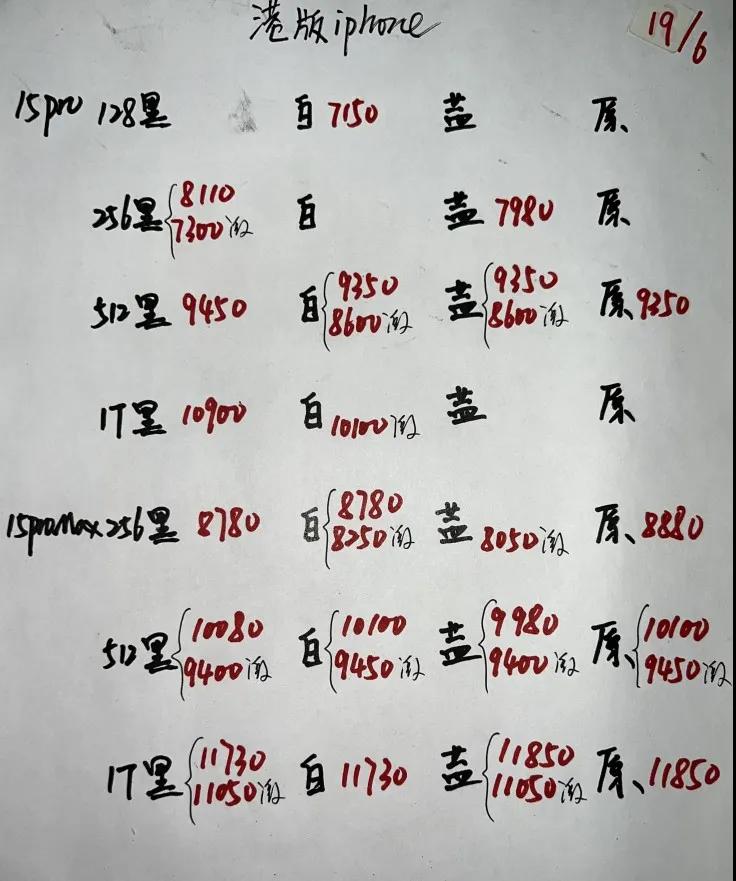 港版iphone
19/6
15pro 128黑 白 7150 蓝 原、
256黑 8110 7300激 白 蓝 7980 原
512黑 9450 白 9350 8600激 蓝 9350 8600激 原、9350
1T黑 10900 白 10100激 蓝 原
15proMax 256黑 8780 白 8780 8250激 蓝 8050激 原、8880
512黑 10080 9400激 白 10100 9450激 蓝 9980 9400激 原、10100 9450激
1T黑 11730 11050激 白 11730 蓝 11850 11050激 原、11850